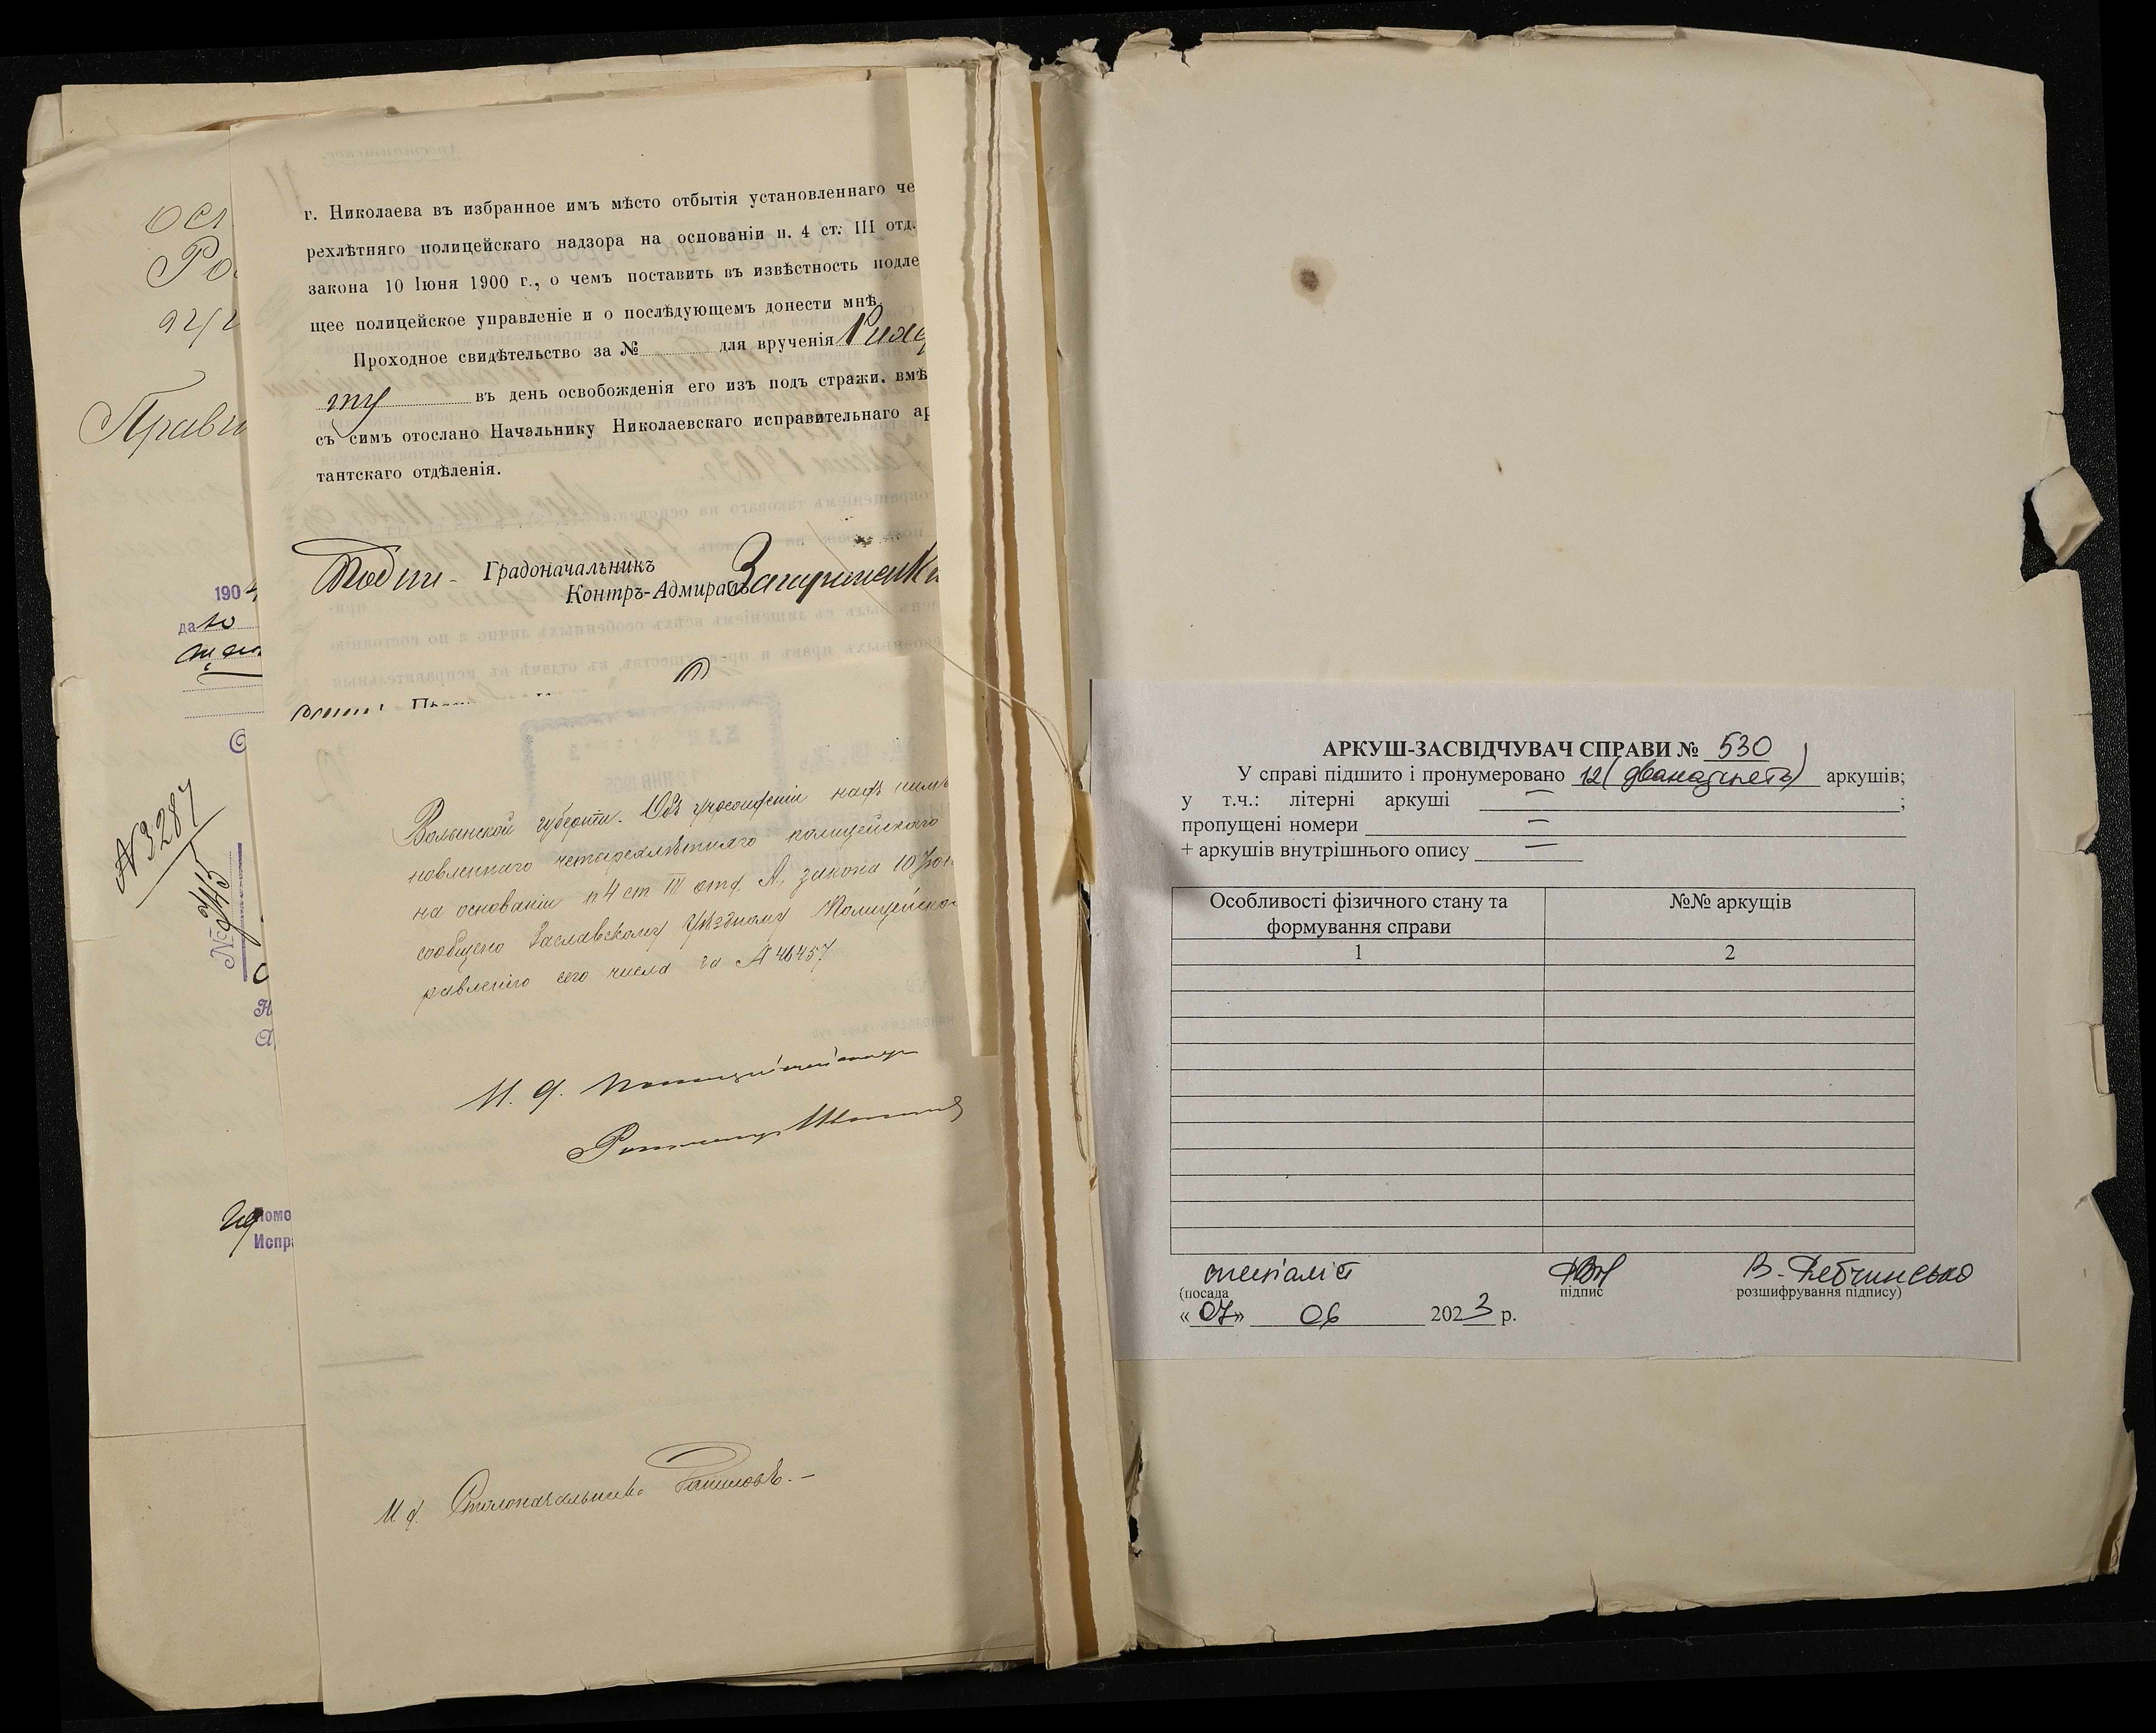 г. Николаева въ избранное имъ мѣсто отбытія установленнаго че
рехлѣтняго полицейскаго надзора на основаніи п. 4 ст. III отд.
закона 10 Іюня 1900 г., о чемъ поставить въ извѣстность подле
щее полицейское управленіе и о послѣдующемъ донести мнѣ.
Проходное свидѣтельство за № для врученія
ту въ день освобожденія его изъ подъ стражи, вмѣ
съ симъ отослано Начальнику Николаевскаго исправительнаго ар
тантскаго отдѣленія.
Градоначальникъ
Контръ-Адмиралъ
Волынской губерніи. Объ учрежденіи надъ нимъ
новленнаго четырехлѣтняго полицейскаго
на основаніи п 4 ст III отд. А, закона 10 Іюн
сообщено Заславскому Уѣздному Полицейско
равленію сего числа за № 46457
И. д. Полиціймейстера
И д. Столоначальника
Ост
Ро
Прави
1904
да
№ 3287
№ 245
Помо
Испра
АРКУШ-ЗАСВІДЧУВАЧ СПРАВИ № 530
У справі підшито і пронумеровано 12 (дванадцять) аркушів;
у т.ч.: літерні аркуші — ;
пропущені номери —
+ аркушів внутрішнього опису —
Особливості фізичного стану та формування справи №№ аркущів
1 2
спеціаліст
(посада підпис розшифрування підпису)
«07» 06 2023 р.